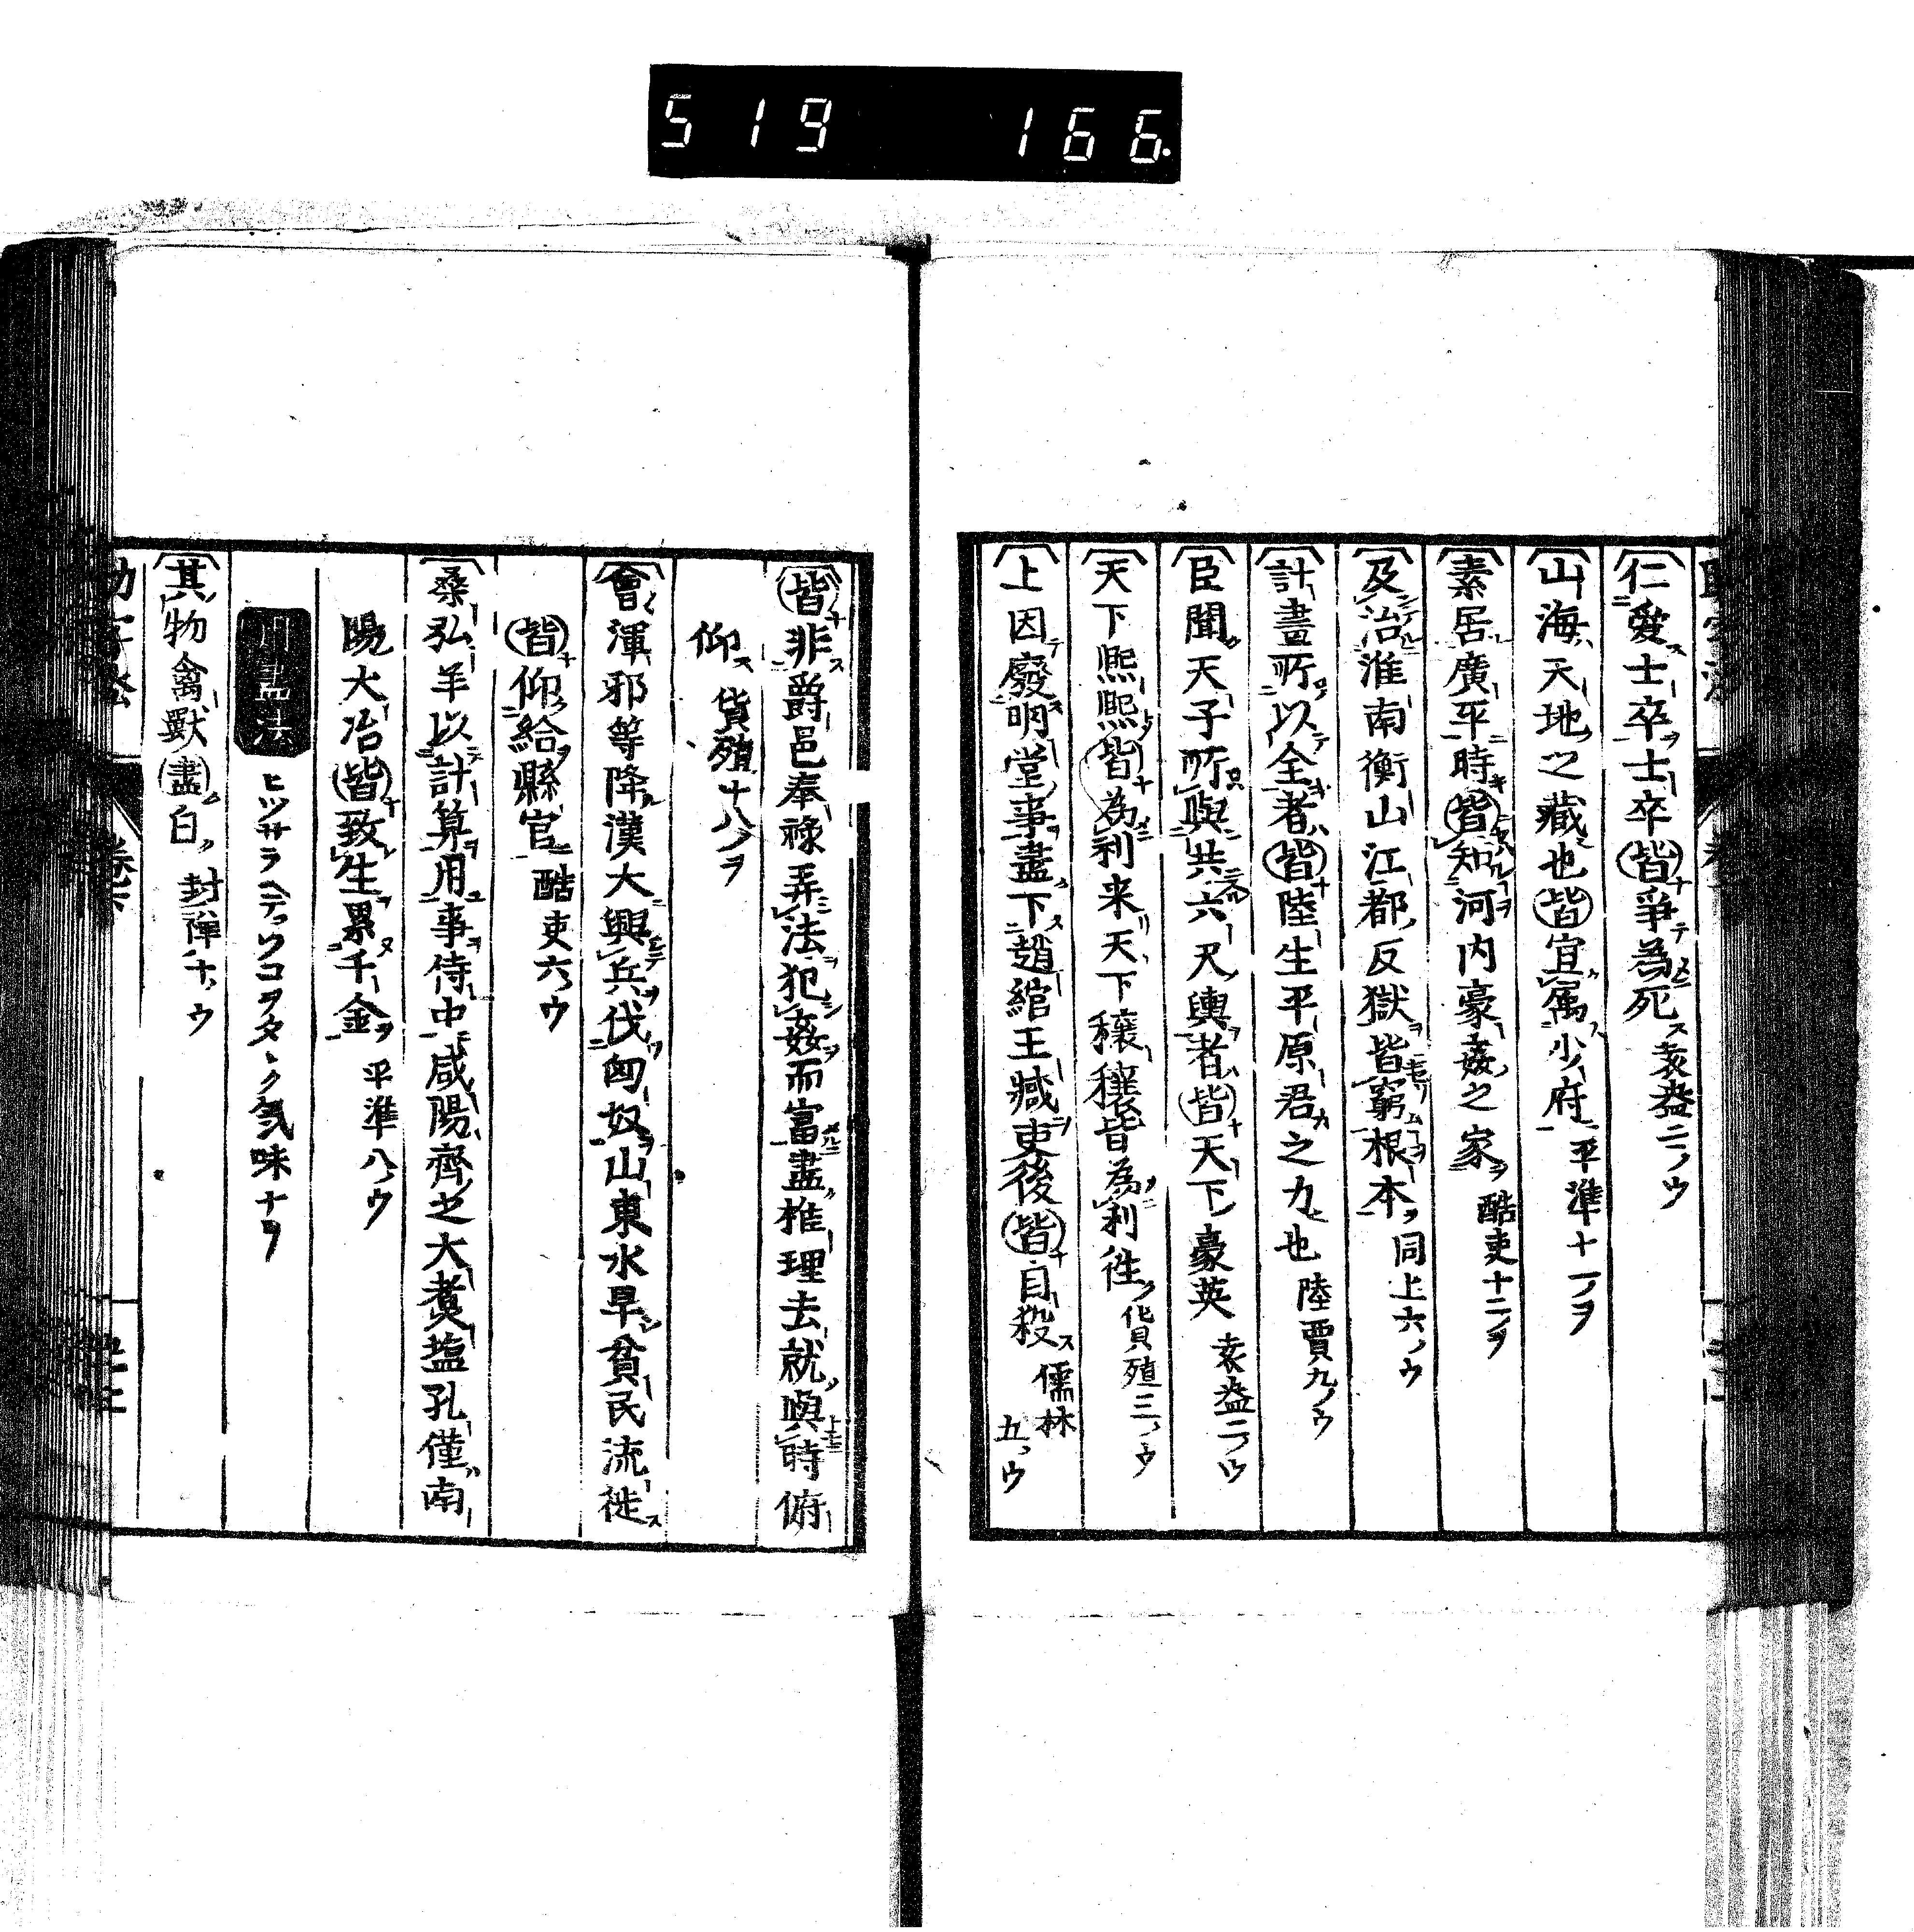 519 166.
仁愛士卒士卒皆爭為死 袁盎二ノウ
山海天地之藏也皆宜属少府 平準十一ノヲ
素居廣平時皆知河内豪姦之家 酷吏十二ノヲ
及治淮南衡山江都反獄皆窮根本 同上六ノウ
計畫所以全者皆陸生平原君之力也 陸賈九ノウ
臣聞天子所與共六尺輿者皆天下豪英 袁盎二ノウ
天下熙熙皆為利来天下穰穰皆為利徃 貨殖三ノウ
上因廢明堂事盡下趙綰王臧吏後皆自殺 儒林五ノウ
皆非爵邑奉祿弄法犯姦而富盡椎理去就與時俯
仰 貨殖十八ノヲ
會渾邪等降漢大興兵伐匈奴山東水旱貧民流徙
皆仰給縣官 酷吏六ノウ
桑弘羊以計算用事侍中咸陽齊之大煑塩孔僅南
陽大冶皆致生累千金 平準八ノウ
用盡法 ヒツサラヘテソコヲタヽク気味ナリ
其物禽獸盡白 封禪十ノウ